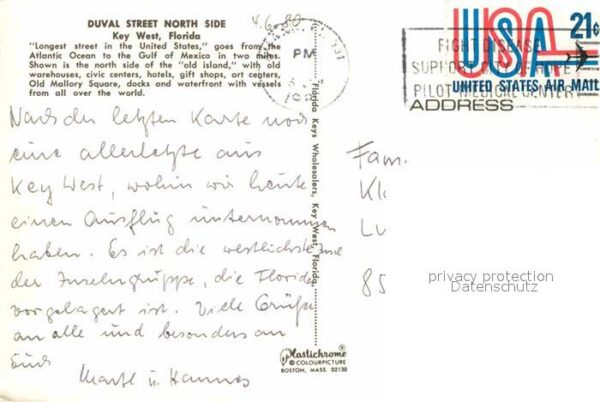 DUVAL STREET NORTH SIDE
Key West, Florida
"Longest street in the United States," goes from the
Atlantic Ocean to the Gulf of Mexico in two miles.
Shown is the north side of the "old island," with old
warehouses, civic centers, hotels, gift shops, art centers,
Old Mallory Square, docks and waterfront with vessels
from all over the world.
4.6.80
PM
USA 21¢
UNITED STATES AIR MAIL
FIGHT DISEASE
SUPPORT CITY OF HOPE
PILOT MEDICAL CENTER
ADDRESS
Nach der letzten Karte noch
eine allerletzte aus
Key West, wohin wir heute
einen Ausflug unternommen
haben. Es ist die westlichste Insel
der Inselngruppe, die Florida
vorgelagert ist. Viele Grüße
an alle und besonders an
Euch
u. Hannes
Florida Keys Wholesalers, Key West, Florida.
Fam.
Kl
Lu
85
privacy protection
Datenschutz
Plastichrome
© COLOURPICTURE
BOSTON, MASS. 02130